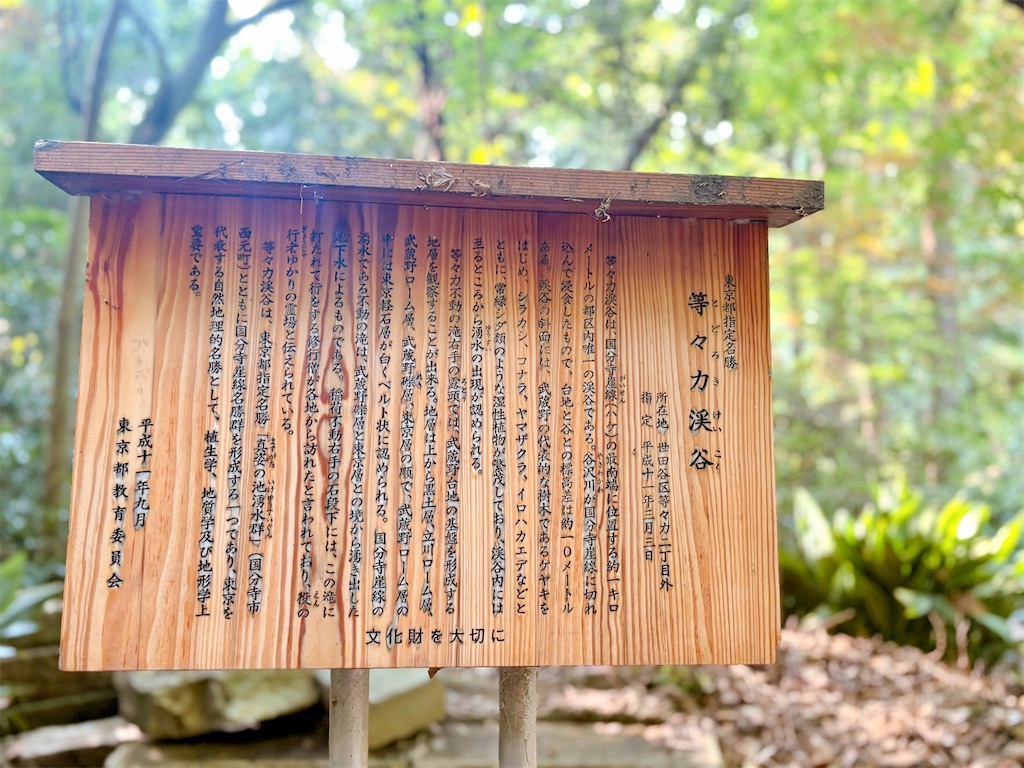 東京都指定名勝
等々力渓谷
とどろきけいこく
所在地 世田谷区等々力二丁目外
指定 平成十一年三月三日
等々力渓谷は、国分寺崖線(ハケ)の最南端に位置する約一キロ
がいせん
メートルの都区内唯一の渓谷である。谷沢川が国分寺崖線に切れ
やざわがわ
込んで浸食したもので、台地と谷との標高差は約一〇メートル
ある。渓谷の斜面には、武蔵野の代表的な樹木であるケヤキを
はじめ、シラカシ、コナラ、ヤマザクラ、イロハカエデなどと
ともに、常緑シダ類のような湿性植物が繁茂しており、渓谷内には
至るところから湧水の出現が認められる。
等々力不動の滝右手の露頭では、武蔵野台地の基盤を形成する
ろとう
地層を観察することが出来る。地層は上から黒土層、立川ローム層、
武蔵野ローム層、武蔵野礫層、東京層の順で、武蔵野ローム層の
中には東京軽石層が白くベルト状に認められる。国分寺崖線の
湧水である不動の滝は、武蔵野礫層と東京層との境から湧き出した
地下水によるものである。稲荷不動右手の石段下には、この滝に
打たれて行をする修行僧が各地から訪れたと言われており、役の
えん
行者ゆかりの霊場と伝えられている。
ぎょうじゃ
等々力渓谷は、東京都指定名勝「真姿の池湧水群」(国分寺市
ますがたのいけゆうすいぐん
西元町)とともに国分寺崖線名勝群を形成する一つであり、東京を
代表する自然地理的名勝として、植生学、地質学及び地形学上
重要である。
平成十一年九月
東京都教育委員会
文化財を大切に